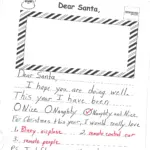 Dear Santa,
Dear Santa,
I hope you are doing well.
This year I have been
Nice Naughty Naughty and Nice
For Christmas this year, I would really love
1. 2. remote control car
3. remote people.